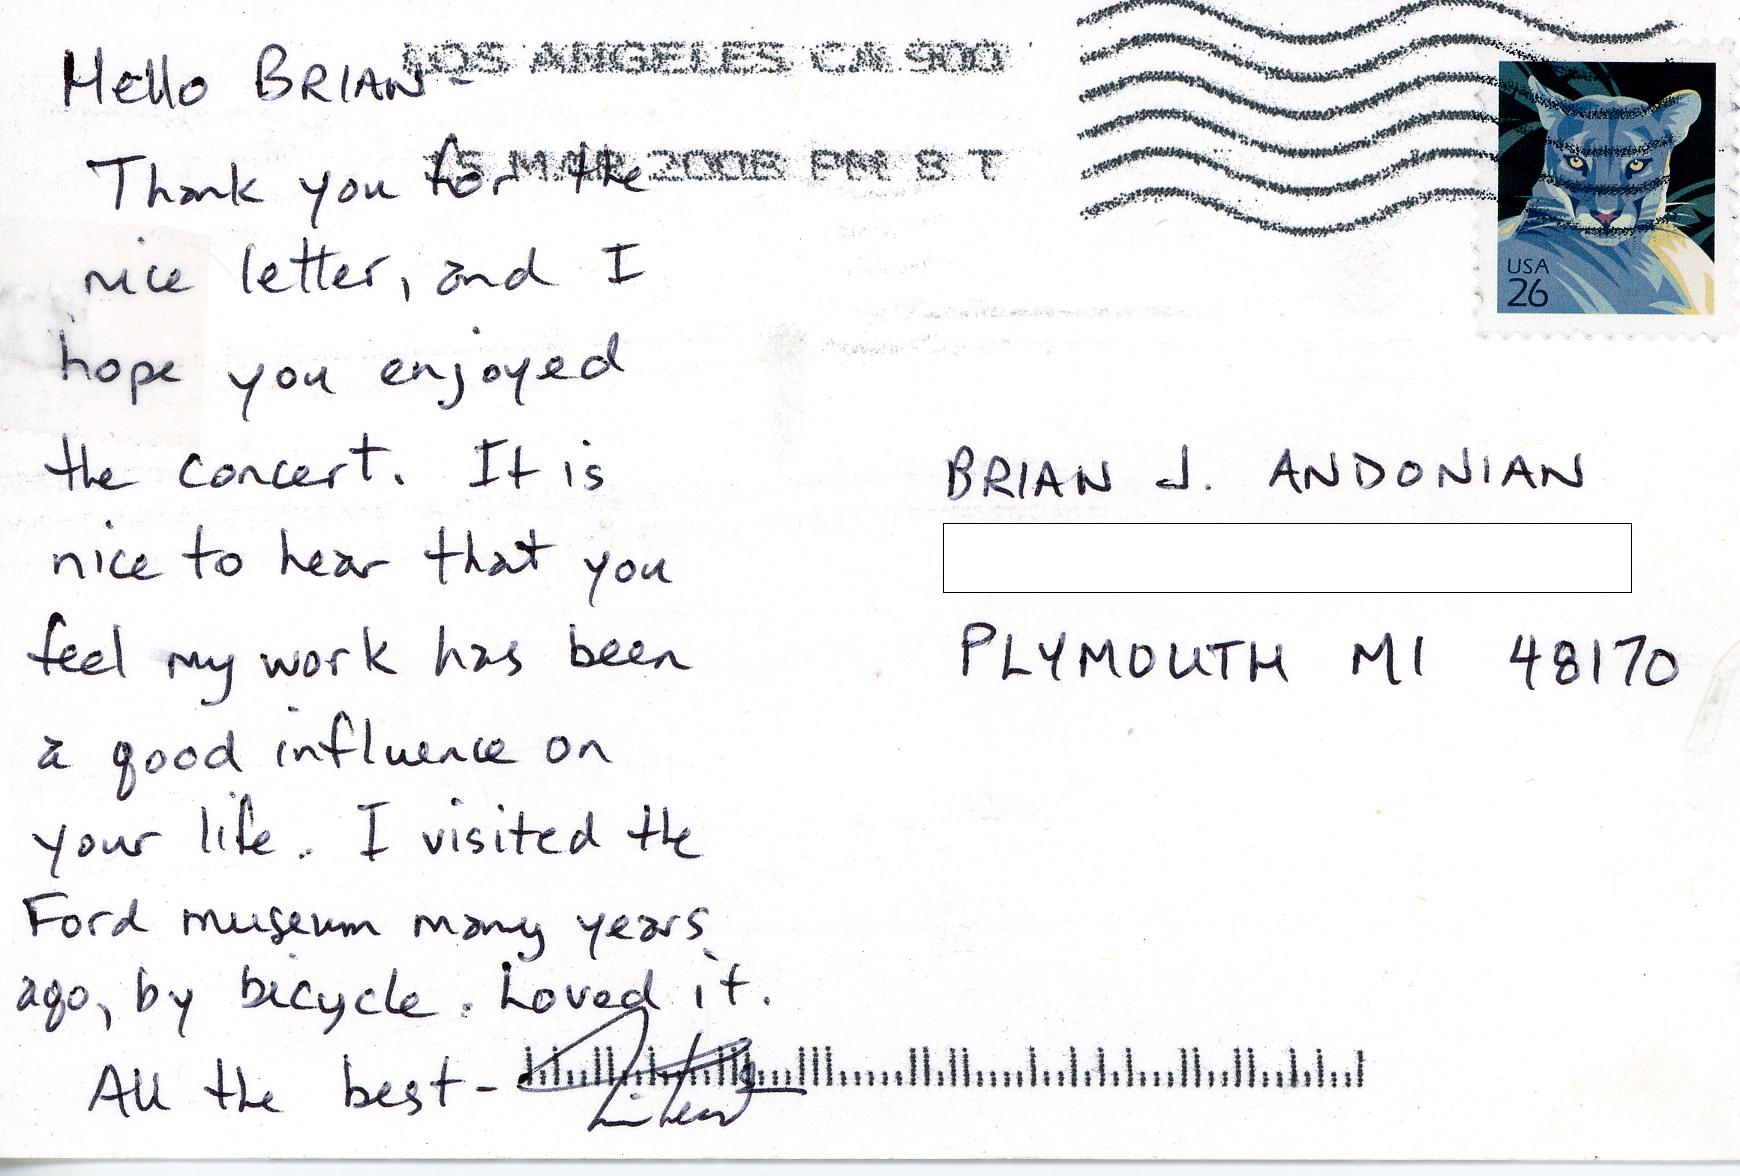 LOS ANGELES CA 900
15 MAR 2008 PM 8 T
USA
26
Hello BRIAN-
Thank you for the
nice letter, and I
hope you enjoyed
the concert. It is
nice to hear that you
feel my work has been
a good influence on
your life. I visited the
Ford museum many years
ago, by bicycle. Loved it.
All the best-
BRIAN J. ANDONIAN
PLYMOUTH MI 48170